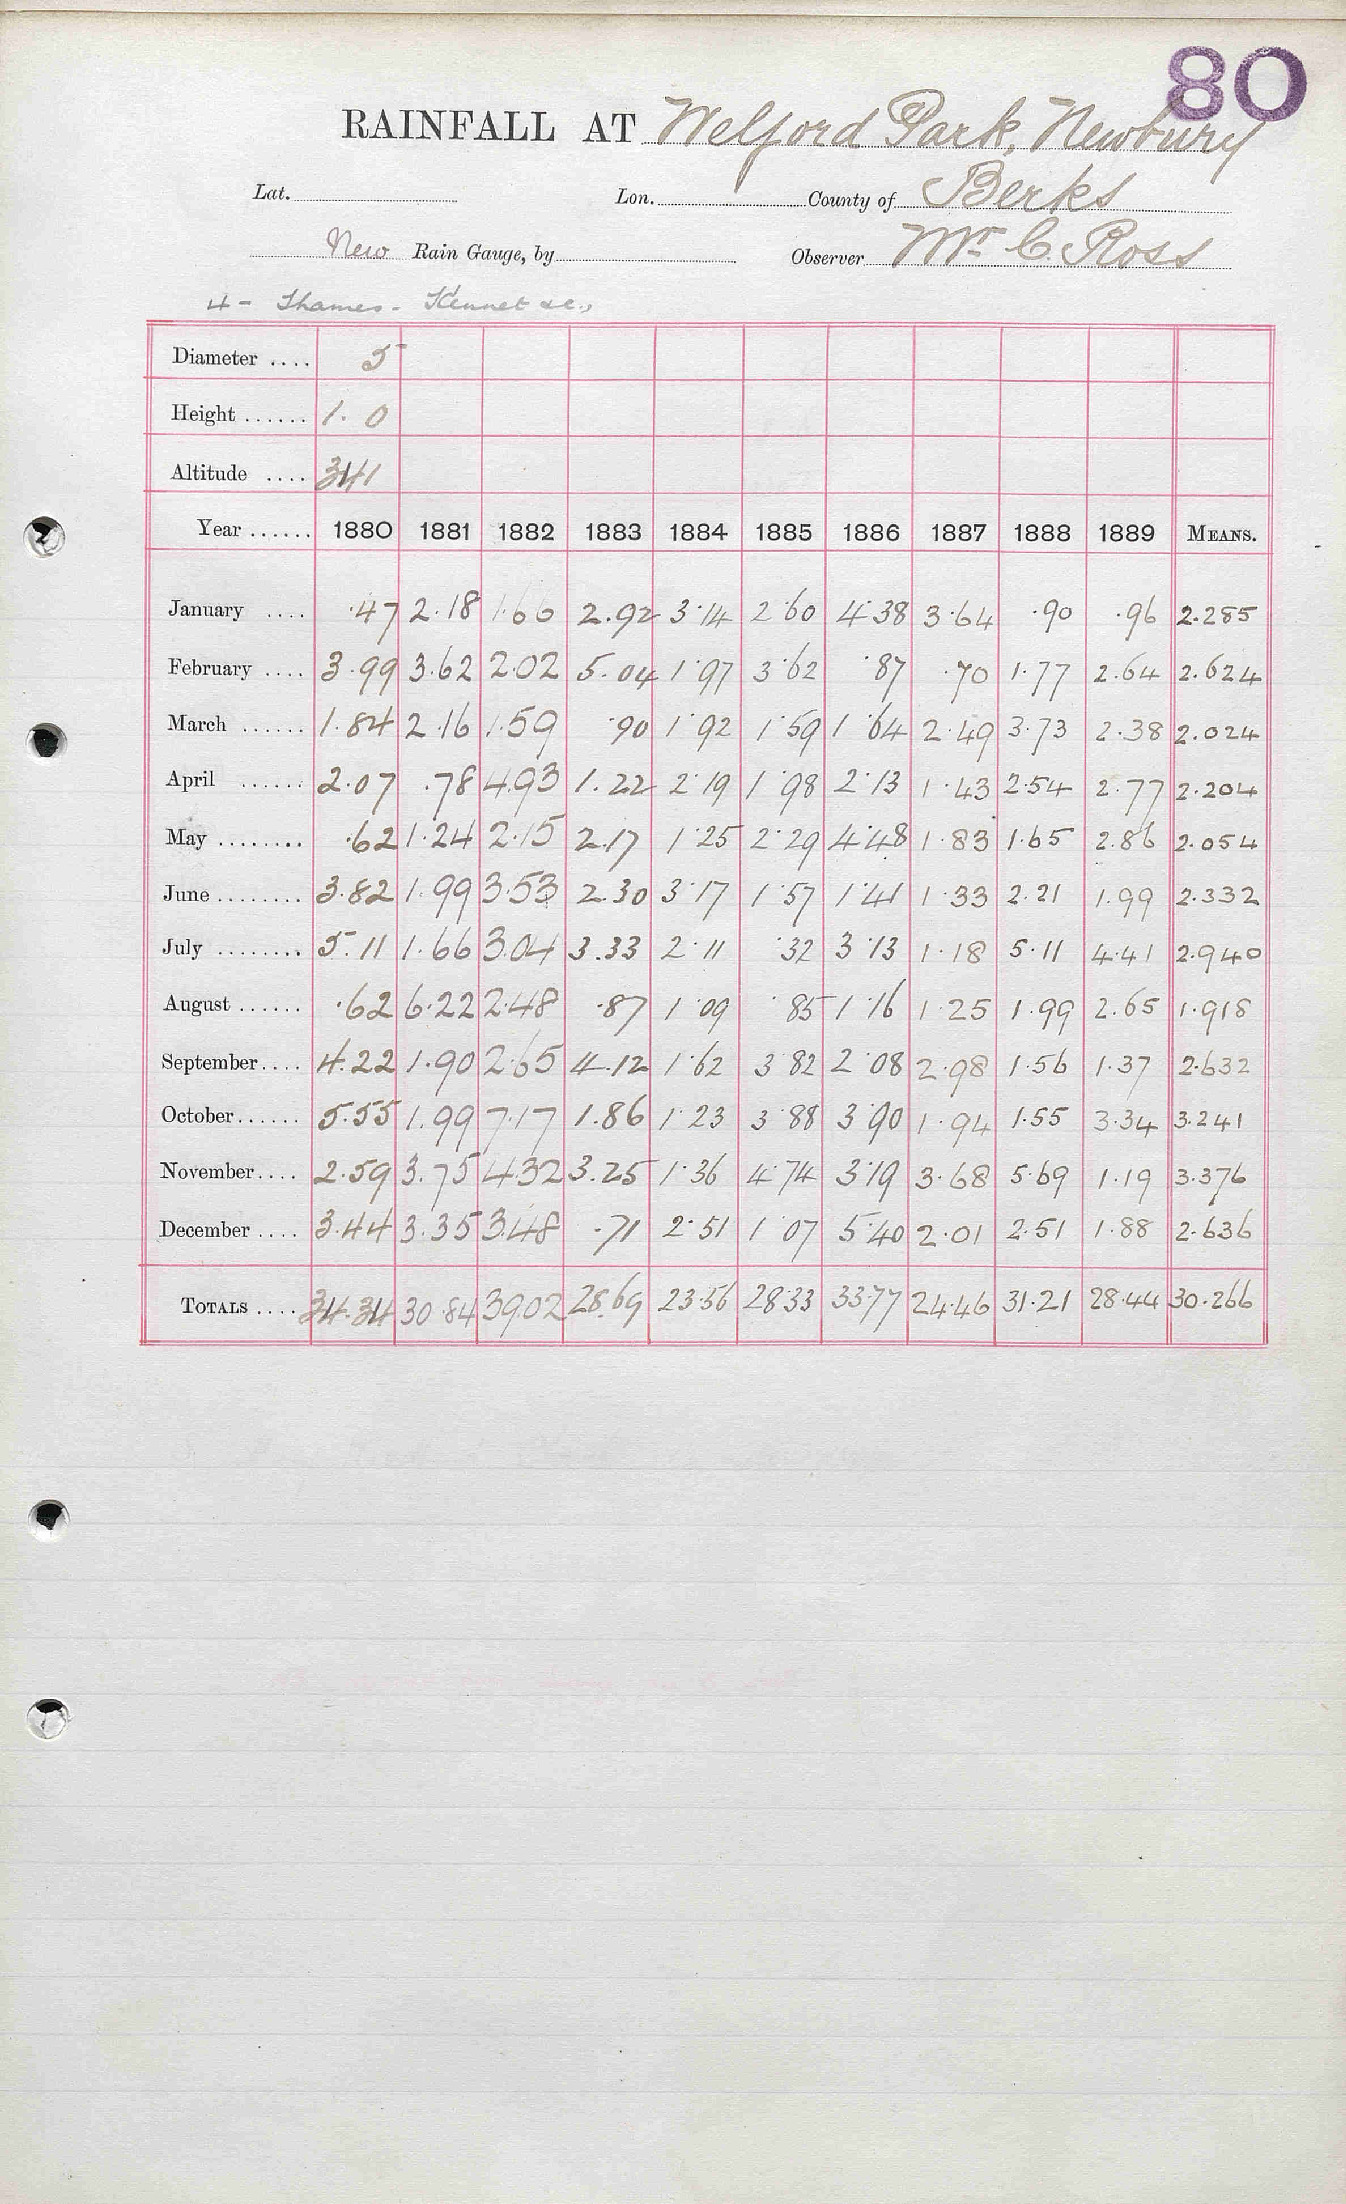 80
RAINFALL AT Welford Park, Newbury
Lat. Lon. County of Berks
New Rain Gauge, by Observer Mr C. Ross
4 - Thames - Kennet &c.,
Diameter .... 5
Height ...... 1. 0
Altitude .... 341
Year ...... 1880 1881 1882 1883 1884 1885 1886 1887 1888 1889 MEANS.
January .... .47 2.18 1.66 2.92 3.14 2.60 4.38 3.64 .90 .96 2.285
February .... 3.99 3.62 2.02 5.04 1.97 3.62 .87 .70 1.77 2.64 2.624
March ...... 1.84 2.16 1.59 .90 1.92 1.59 1.64 2.49 3.73 2.38 2.024
April ...... 2.07 .78 4.93 1.22 2.19 1.98 2.13 1.43 2.54 2.77 2.204
May ........ .62 1.24 2.15 2.17 1.25 2.29 4.48 1.83 1.65 2.86 2.054
June ........ 3.82 1.99 3.53 2.30 3.17 1.57 1.41 1.33 2.21 1.99 2.332
July ........ 5.11 1.66 3.04 3.33 2.11 .32 3.13 1.18 5.11 4.41 2.940
August ...... .62 6.22 2.48 .87 1.09 .85 1.16 1.25 1.99 2.65 1.918
September.... 4.22 1.90 2.65 4.12 1.62 3.82 2.08 2.98 1.56 1.37 2.632
October...... 5.55 1.99 7.17 1.86 1.23 3.88 3.90 1.94 1.55 3.34 3.241
November.... 2.59 3.75 4.32 3.25 1.36 4.74 3.19 3.68 5.69 1.19 3.376
December .... 3.44 3.35 3.48 .71 2.51 1.07 5.40 2.01 2.51 1.88 2.636
TOTALS .... 34.34 30.84 39.02 28.69 23.56 28.33 33.77 24.46 31.21 28.44 30.266